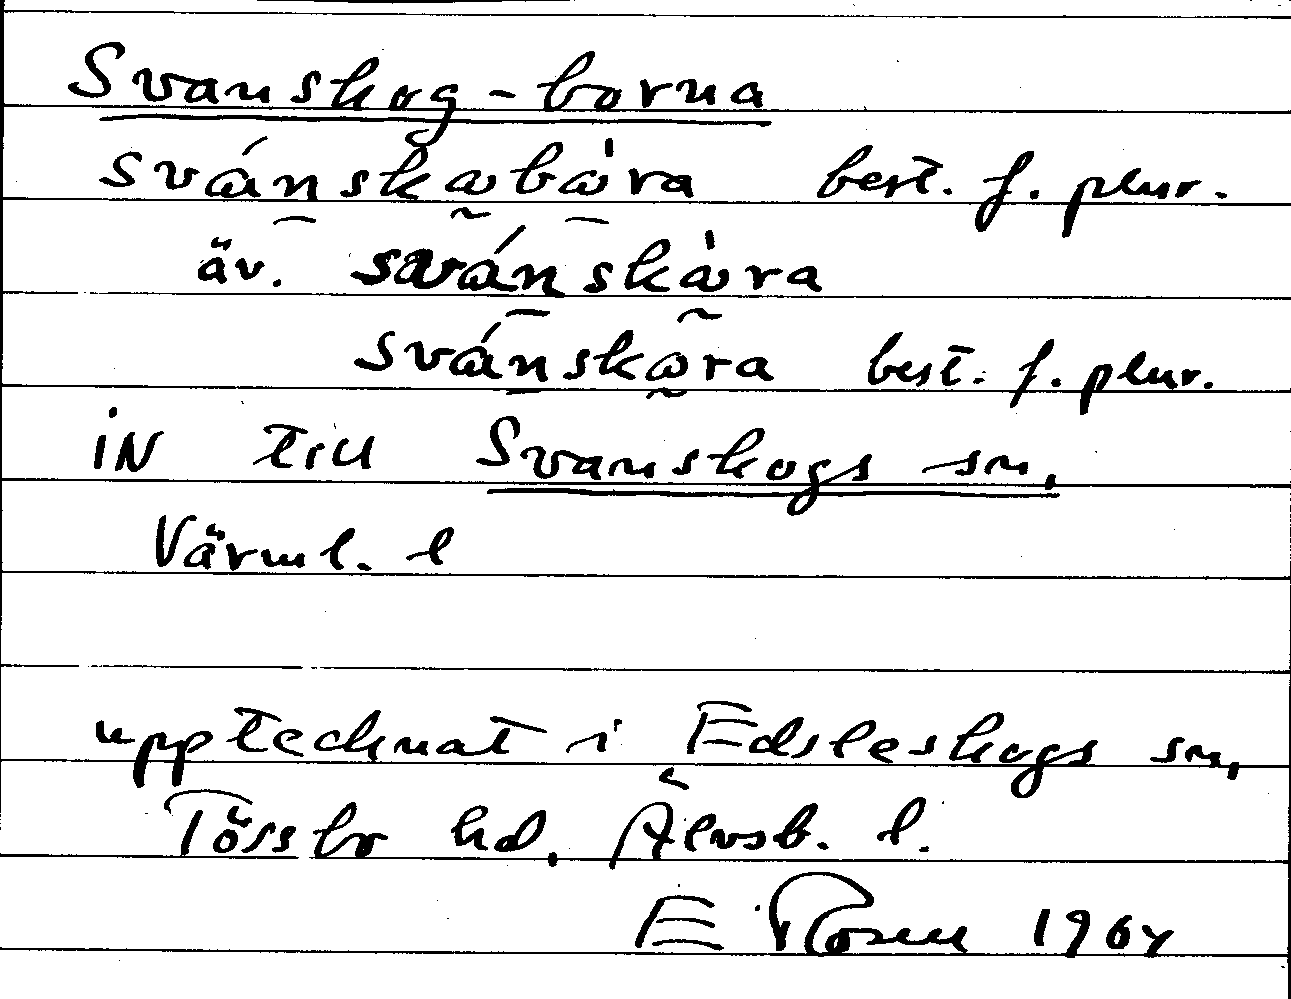 Svanskog-borna
svánskabàra best. f. plur.
äv. svánskàra
svánskara best. f. plur.
iN till Svanskogs sn,
Värml. l
upptecknat i Edsleskogs sn,
Tössbo hd, Älvsb. l.
E. Rosen 1964